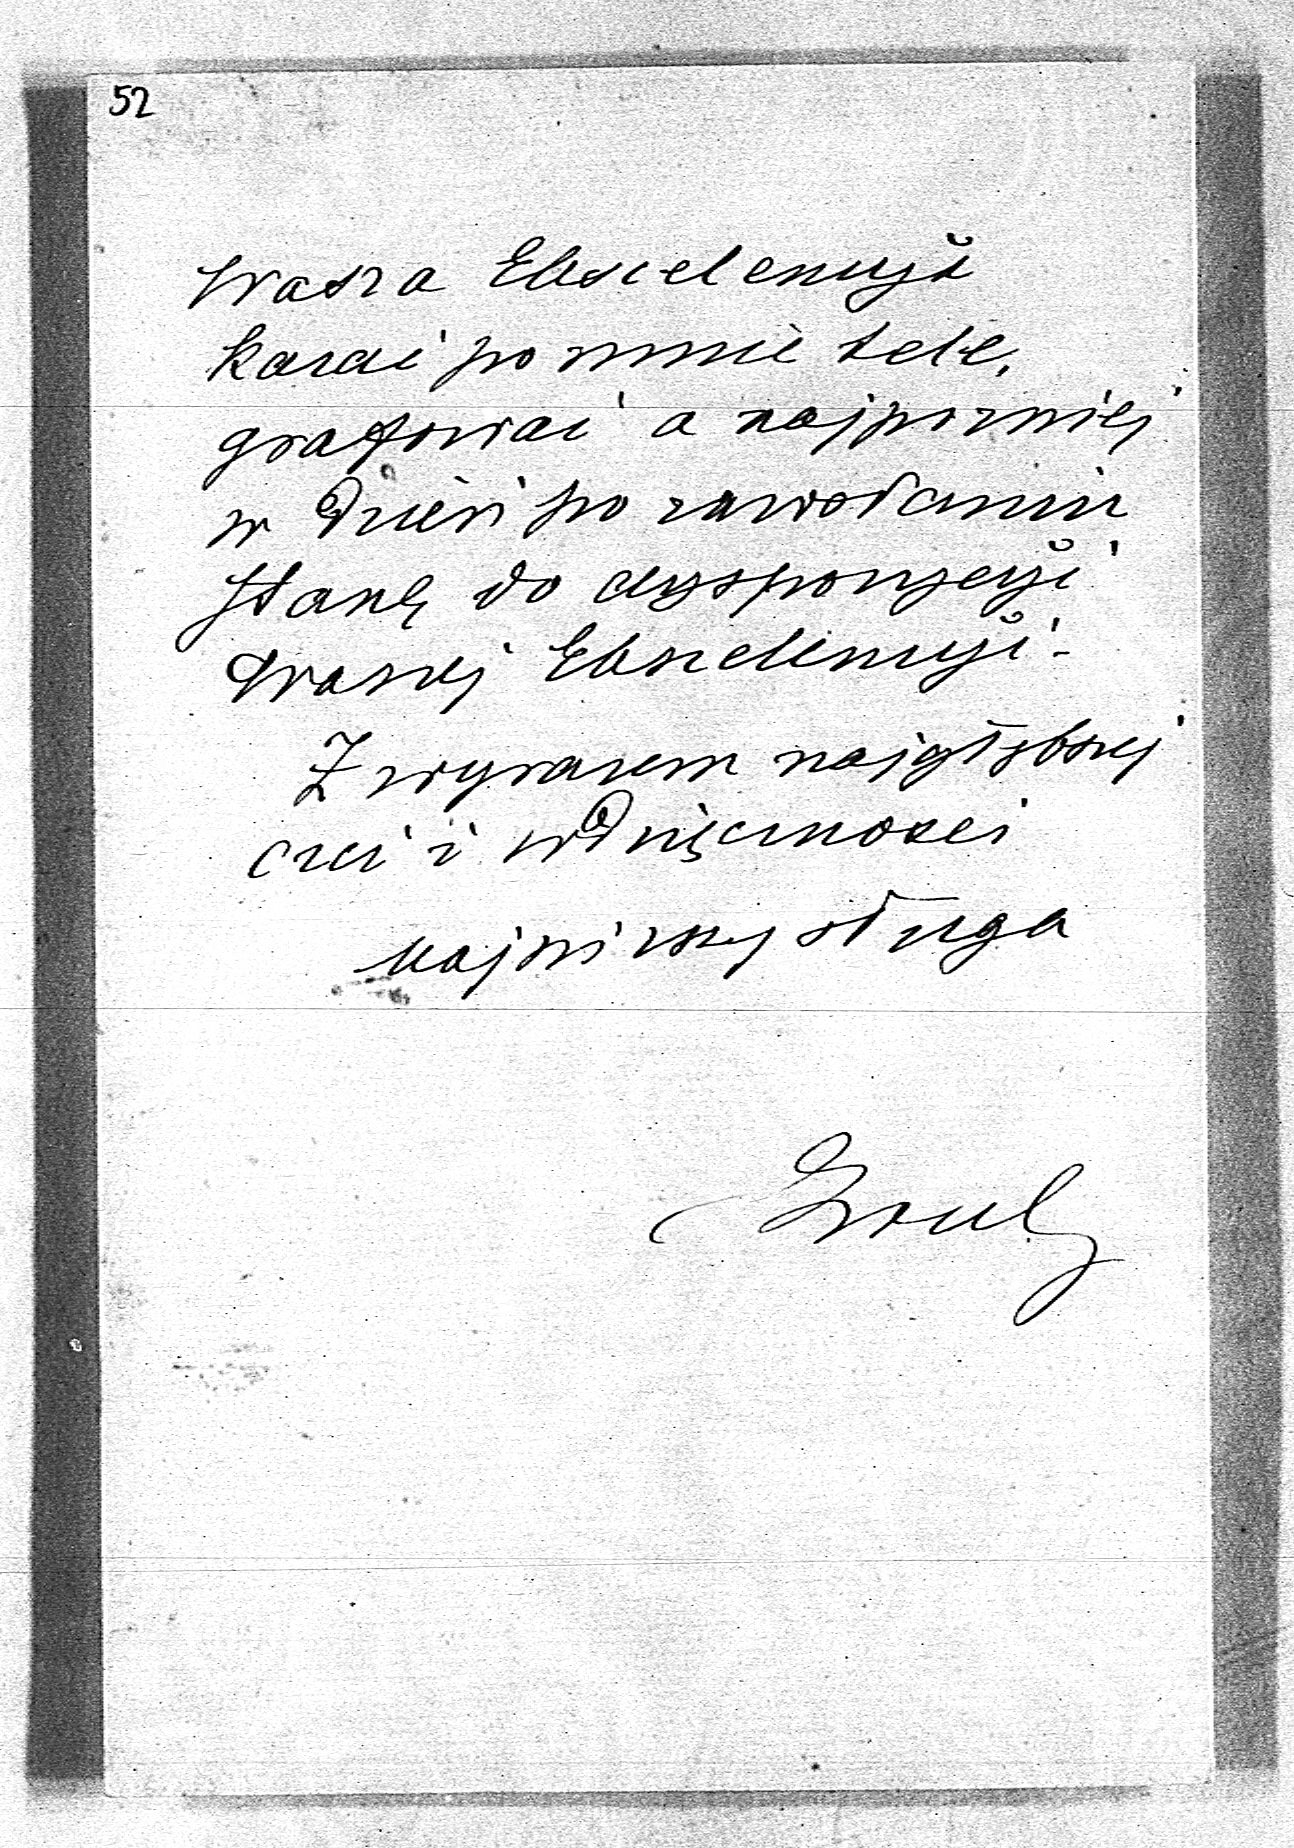 52
Wasza Ekscelencyja
kazać po mnie tele,
grafować a najpozniej
w dzień po zawołaniu
stanę do dyspozycyi
Waszej Ekscelencyi -
Z wyrazem najgłębszej
czci i wdzięczności
najniższy sługa